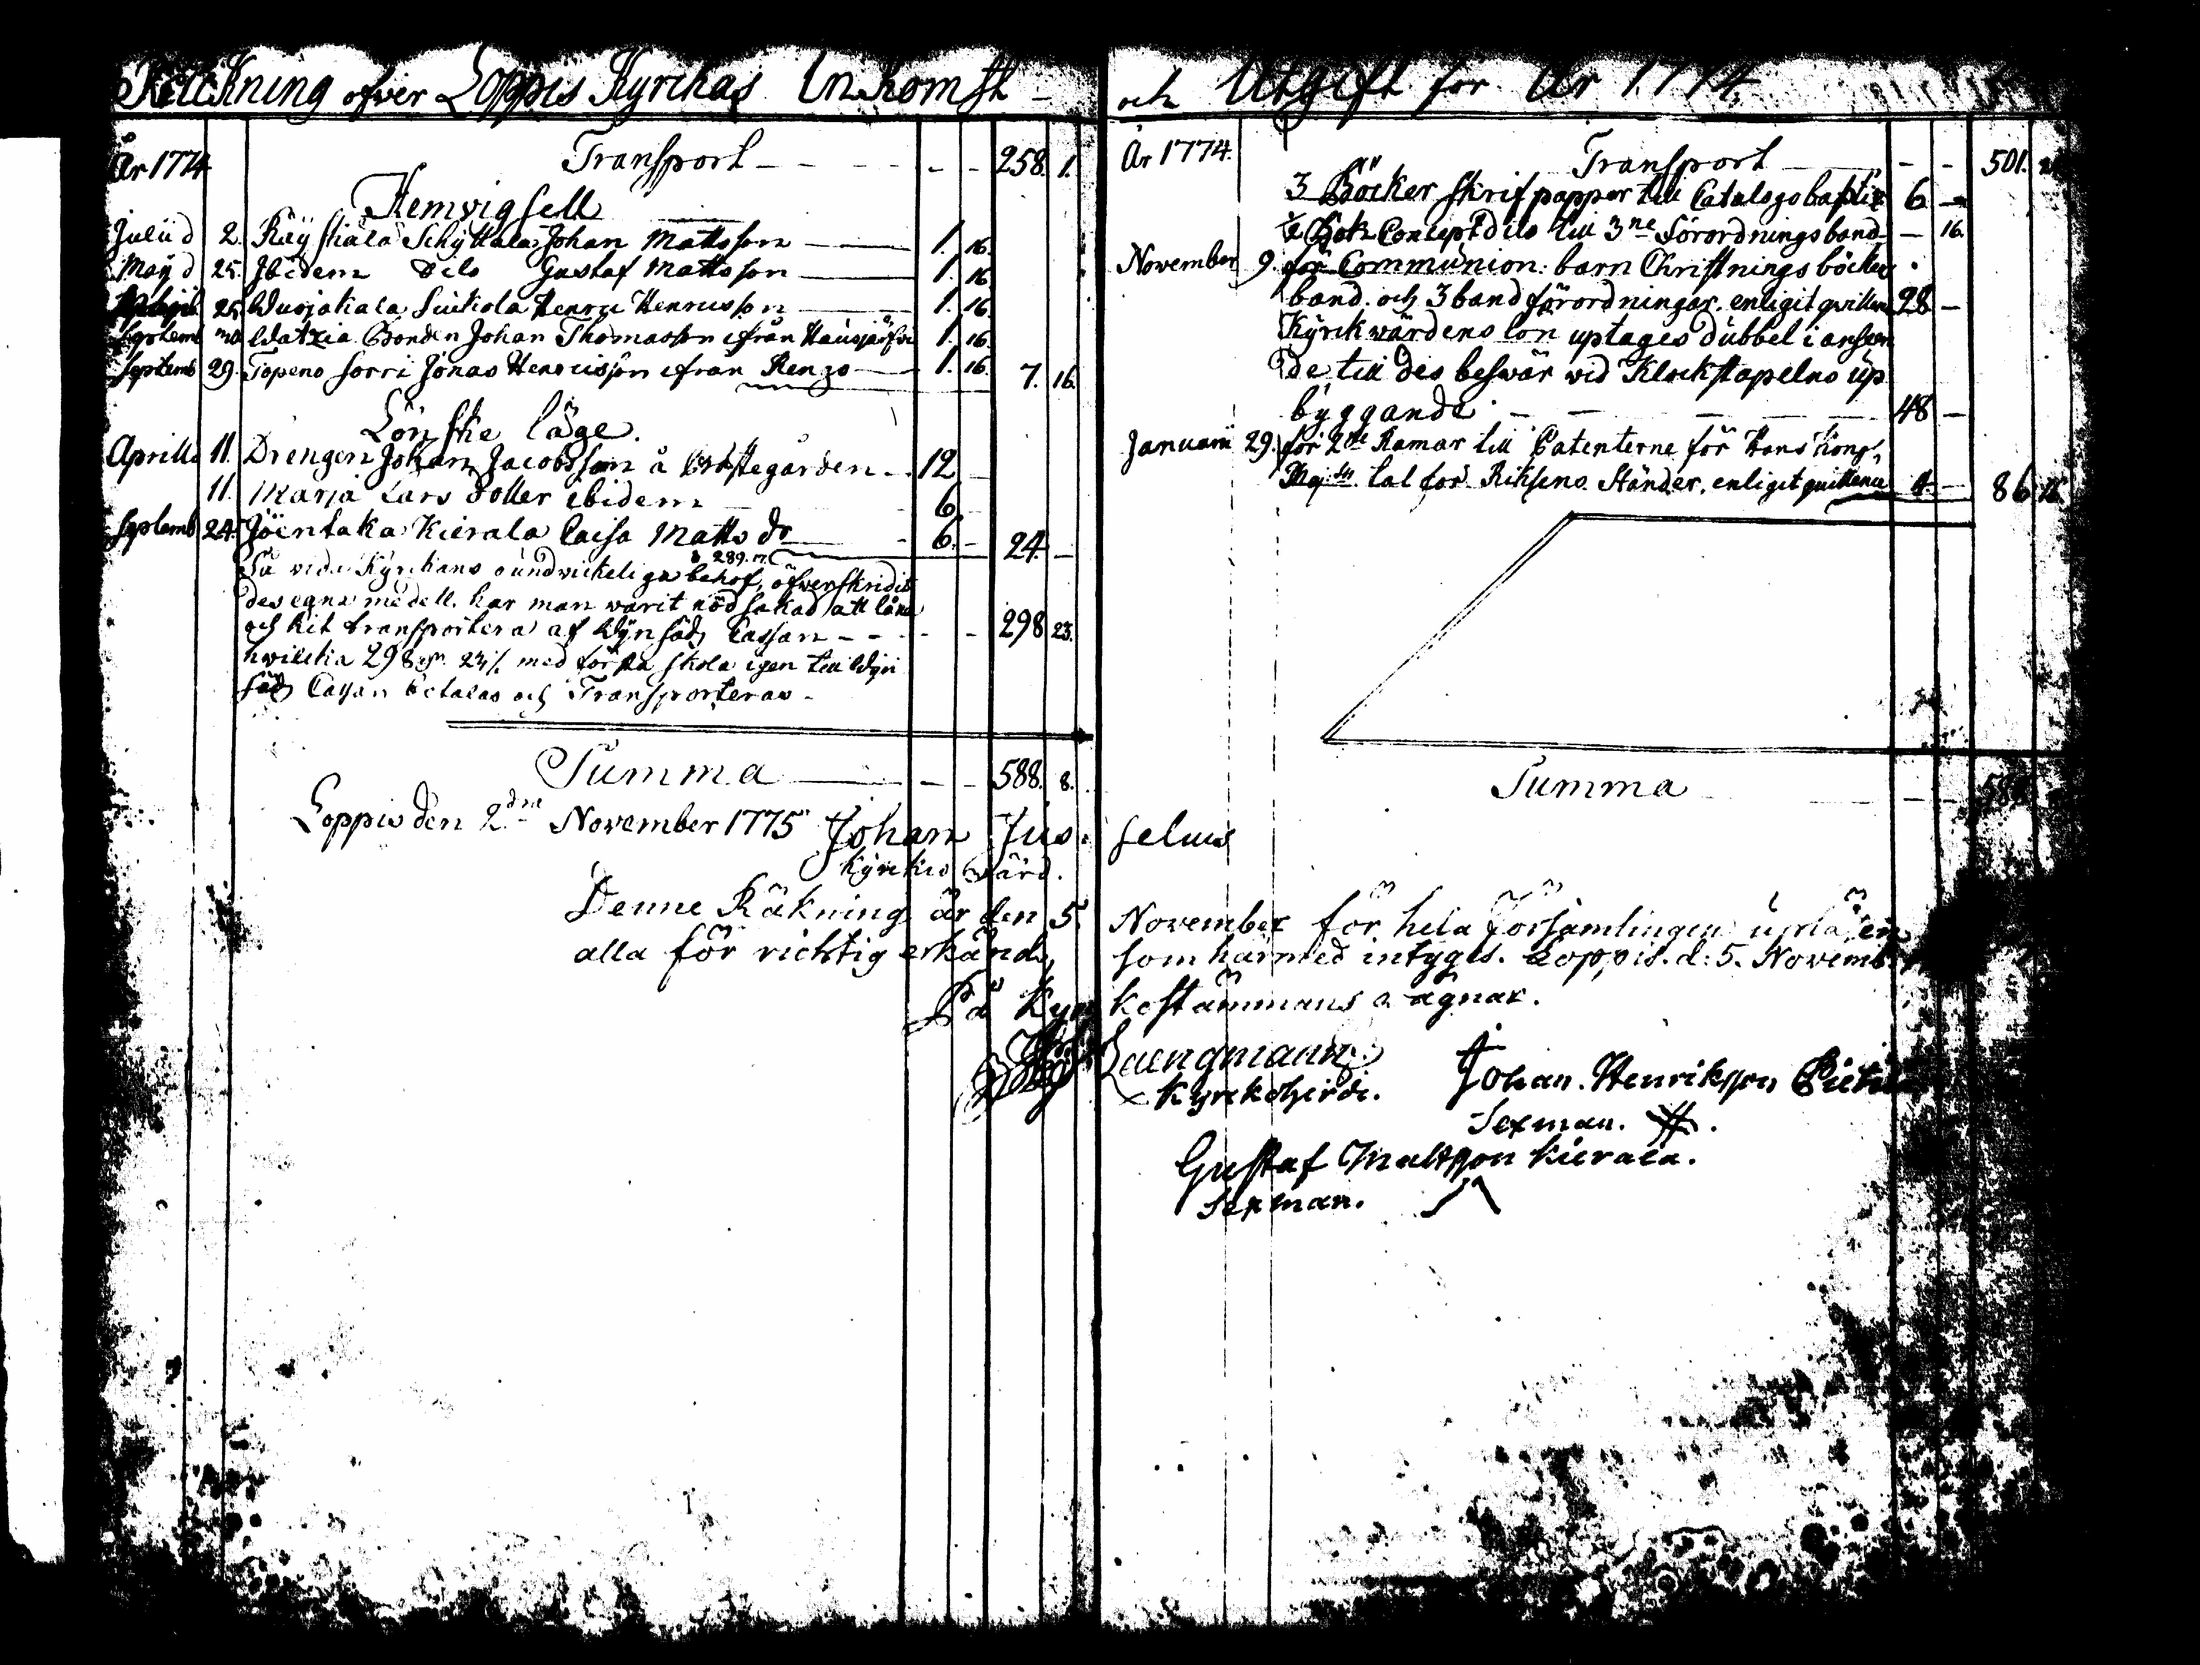 Räckning öfver Loppis Kyrckas Inkomst –
År 1774 Transport – – – – – 258. 1.
Hemvigsell
Julii d 2. Räystiälä Schyttälas Johan Mattsson 1. 16.
Maij d 25. Ibidem Dito Gustaf Mattsson 1. 16.
25. Suikola Henric Henricsson 1. 16.
Septemb Bonden Johan Thomasson ifrån Hausjärfvi 1. 16.
Septemb 29. Topeno Sorri Jonas Henricsson ifrån Rengo 1. 16. 7. 16.
Lönske läge.
Aprilis 11. Drengen Johan Jacobsson å Prästegården 12 –
11. Marja Lars doller ibidem 6.
Septemb 24. Jöentaka Kierala Caisa Matts dr 6. – 24. –
å 289. r.
Så vida Kyrckans oundvickeliga behof, öfverskridit
des egna medell. har man warit nödsakad att låna
och hit transportera af Wijnsäds Cassan – – – 298 23.
hwilcka 298. 23/. med första skola igen till Wijn
säds Cassan betalas och Transporteras –
Summa – – 588. 8.
Loppis den 2dra November 1775 Johan Jus
Kyrckio Wärd.
Denne Räkning är den 5
alla för richtig erkänd,
På Kyr
och Utgift för År 1774.
År 1774. Transport – – 501.
3 Böcker skrifpapper till Catalogo baptiz 6 –
½ Bok Concept dito till 3ne Förordnings band – 16.
November 9. för Communion. barn Christnings böcker
band. och 3 band förordningar. enligit qvitten 28 –
Kyrckwärdens lön uptages dubbel i anseen
de till des beswär wid Klockstapelns up
byggande – – – 48 –
Januarii 29. för 2ne Ramar till Patenterne för Hans Kongl.
Maj:ts tal för Riksens Ständer. enligit quittence 4. – 86.
Summa
selius
November för hela Församlingen upläsen
som härmed intyges. Loppis. d. 5. Novemb.
kostämmans vägnar.
Laengmann.
Kyrckoherde.
Johan. Henriksson
Sexman.
Gustaf Mattsson Kierala.
Sexman.